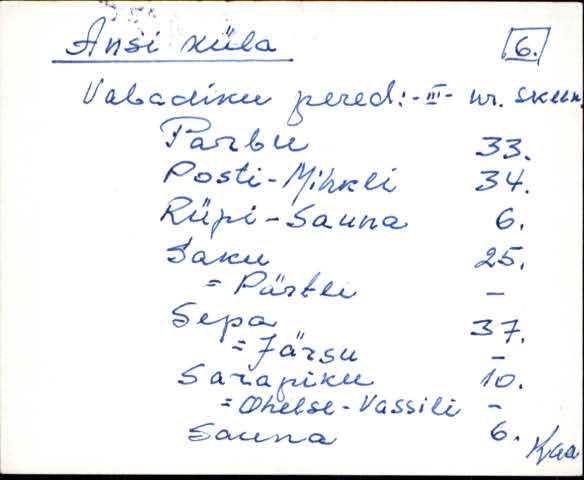 Ansi küla 6.
Vabadiku pered: - III - nr. skeem.
Parbu 33.
Posti-Mihkli 34.
Rüpi-Sauna 6.
Saku 25.
= Pärtli -
Sepa 37.
= Järsu -
Sarapiku 10.
= Ohelse-Vassili -
Sauna 6.
Kaa